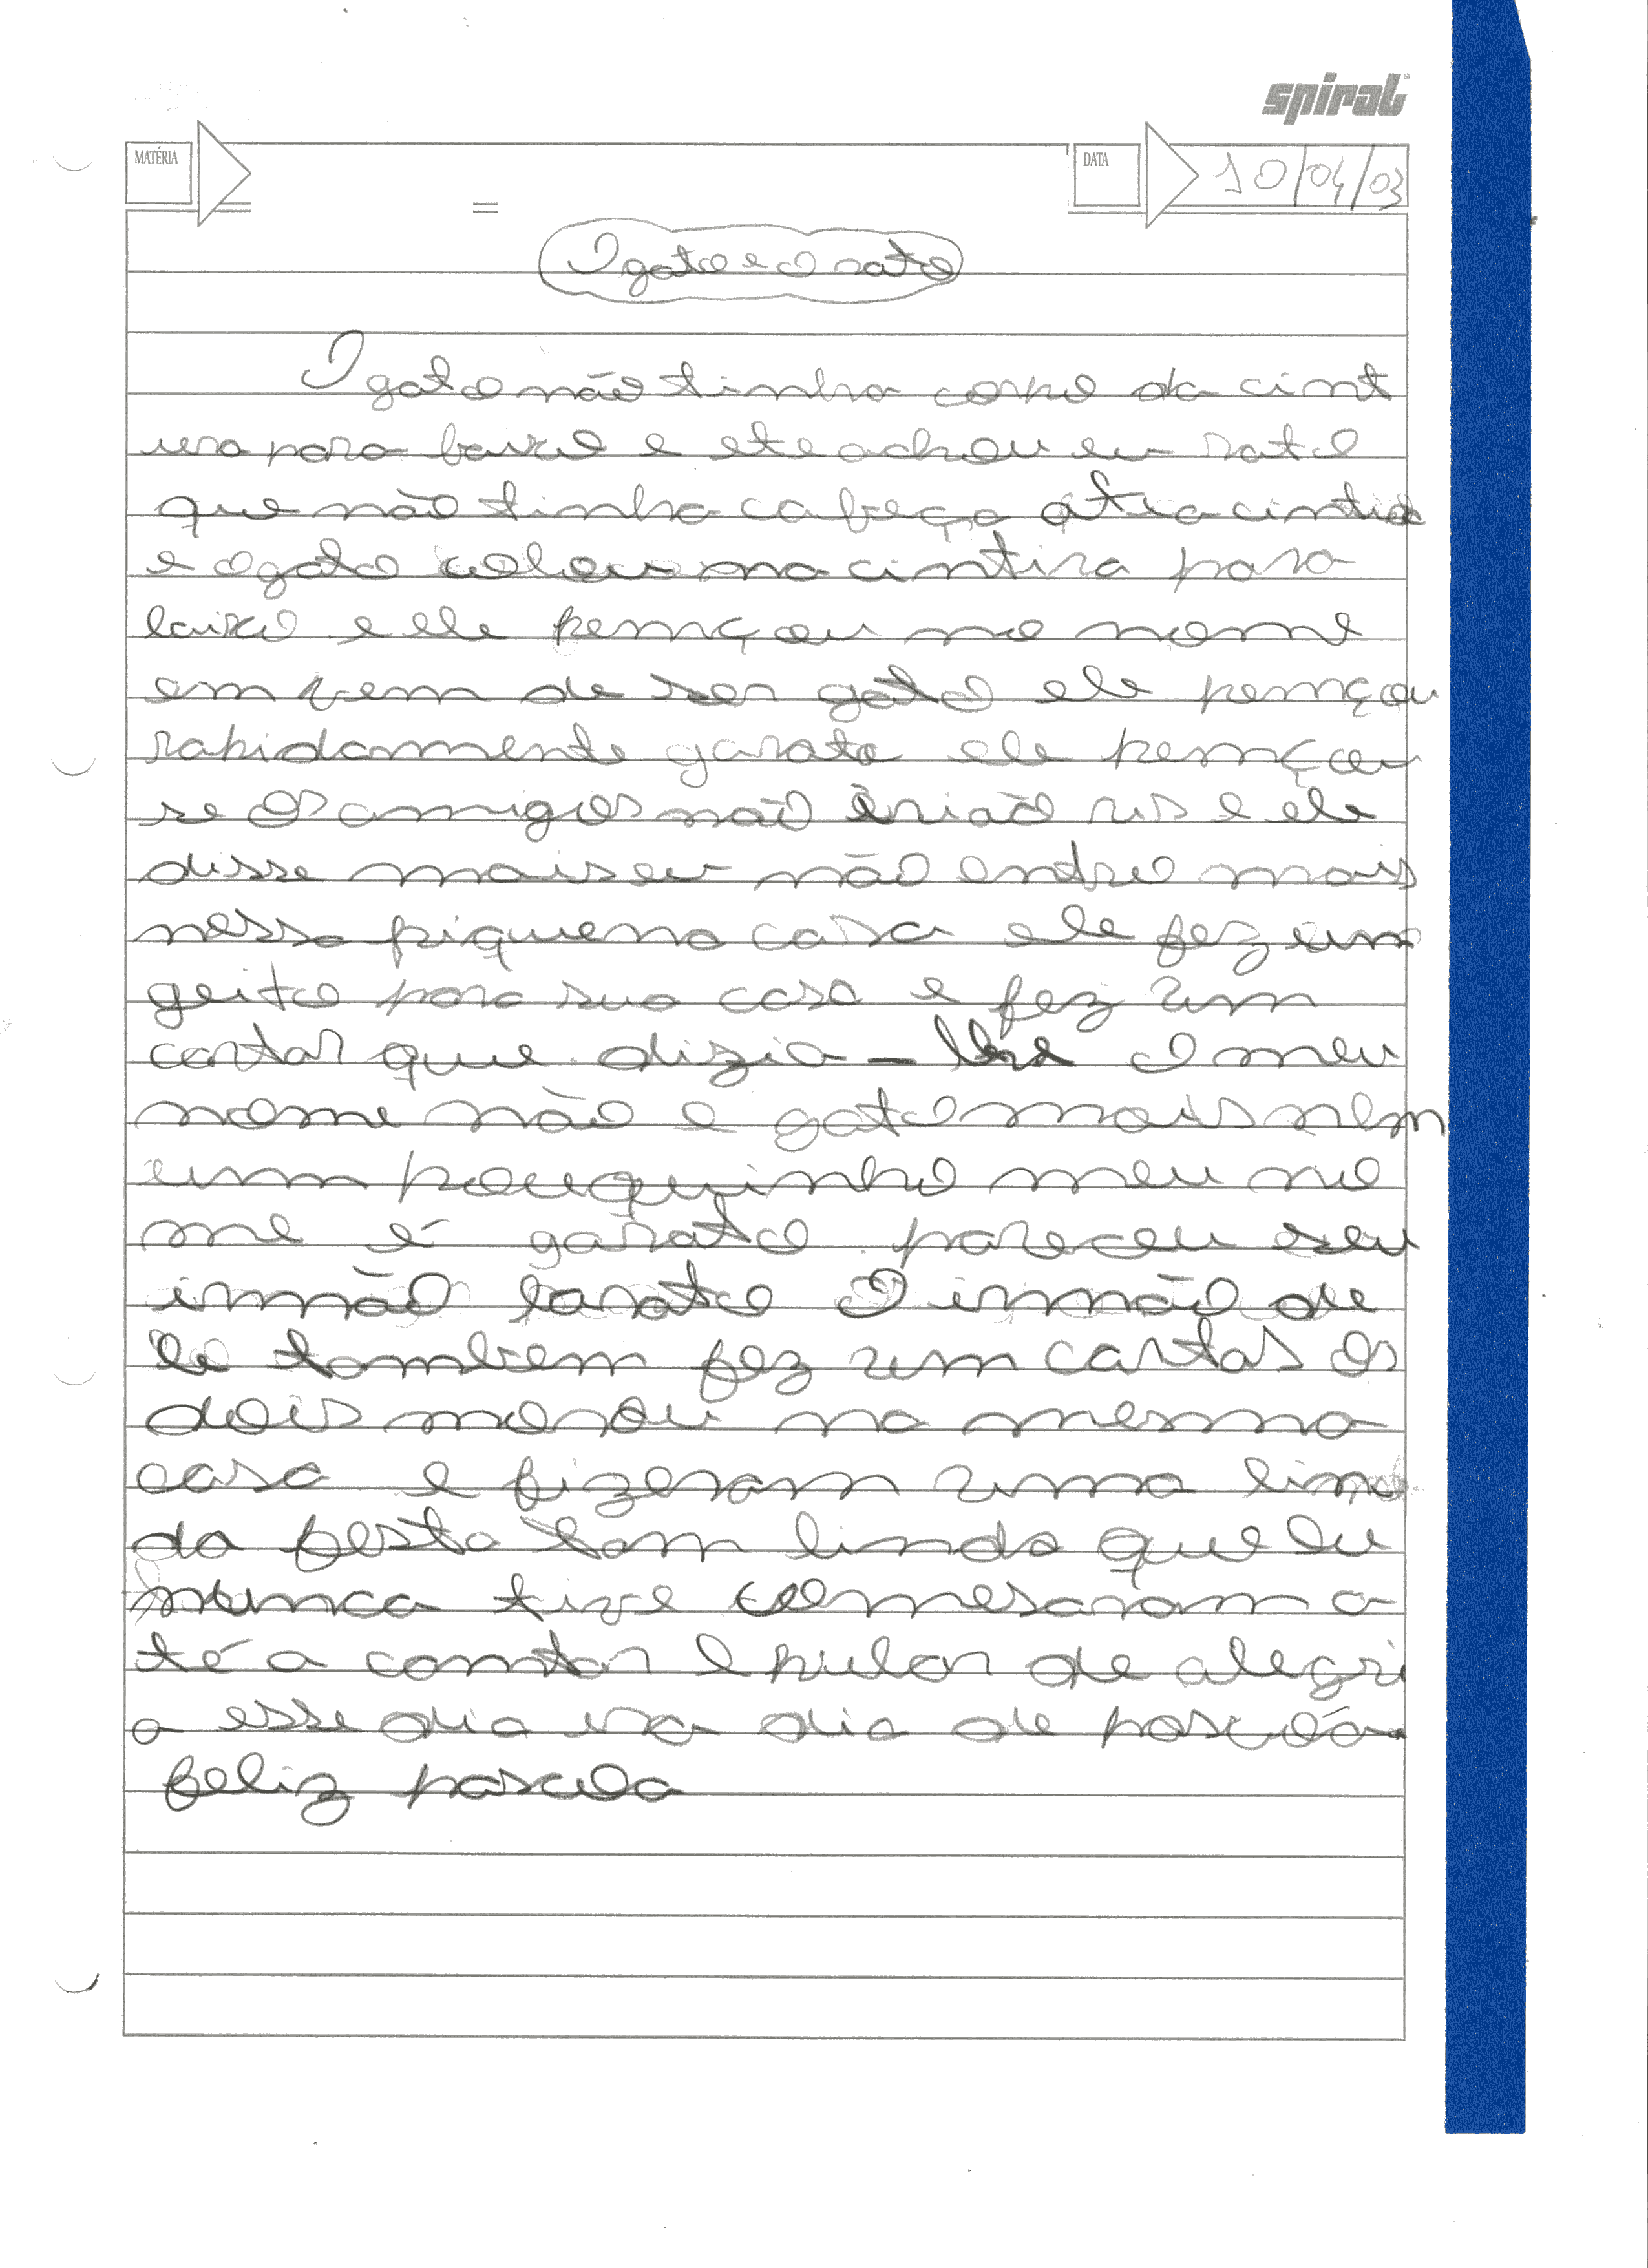 spiral
MATÉRIA
DATA 10/04/03
O gato e o rato
O gato não tinha corpo da cint
ura para baixo e ele achou eu rato
que não tinha cabeça
e o gato colou na cintira para
baixo e ele pemçou no nome
em vem de ser gato ele pemçou
rapidamente garato ele pemçou
se os amigos não irião ris e ele
disse mais eu não entro mais
nessa piquena casa ele fez um
geito para sua casa e fez um
cartas que dizia – o meu
nome não e gato mais nem
um pouquinho meu no
me é garato pareceu seu
irmão larato O irmão de
le tambem fez um cartas os
dois morou na mesma
casa e fizeram uma lin
da festa tam linda que eu
nunca tive comesaram a
té a cantar e pular de alegri
a esse dia era dia de pascoa
feliz pascoa